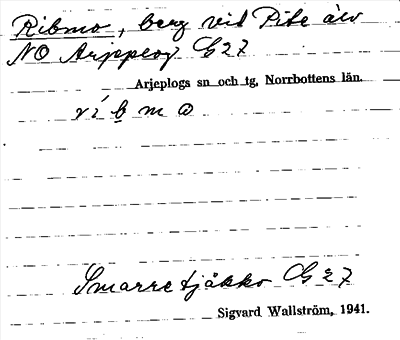 Ribmo, berg vid Pite älv
NO Arjeplog G 27
Arjeplogs sn och tg, Norrbottens län.
ríb̲mo
Smarretjåkko G 27
Sigvard Wallström, 1941.